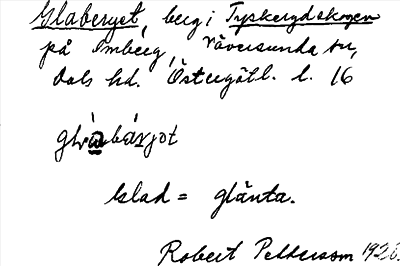 Glaberget, berg i Tyskerydskogen
på Imberg, Väversunda sn,
Dals hd. Östergötl. l. 16
Glad = glänta.
Robert Pettersson 1926.